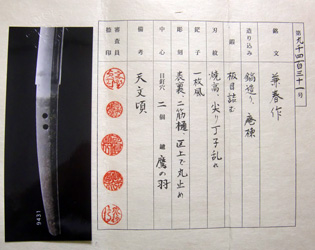 第九千四百三十一号
銘文 兼春作
造り込み 鎬造り、庵棟
鍛 板目詰む
刃紋 焼高、尖り丁子乱れ
鋩子 一枚風
彫刻 表裏二筋樋、区上で丸止め
中心 目釘穴 二個 鑢 鷹の羽
備考 天文頃
審査員
9431